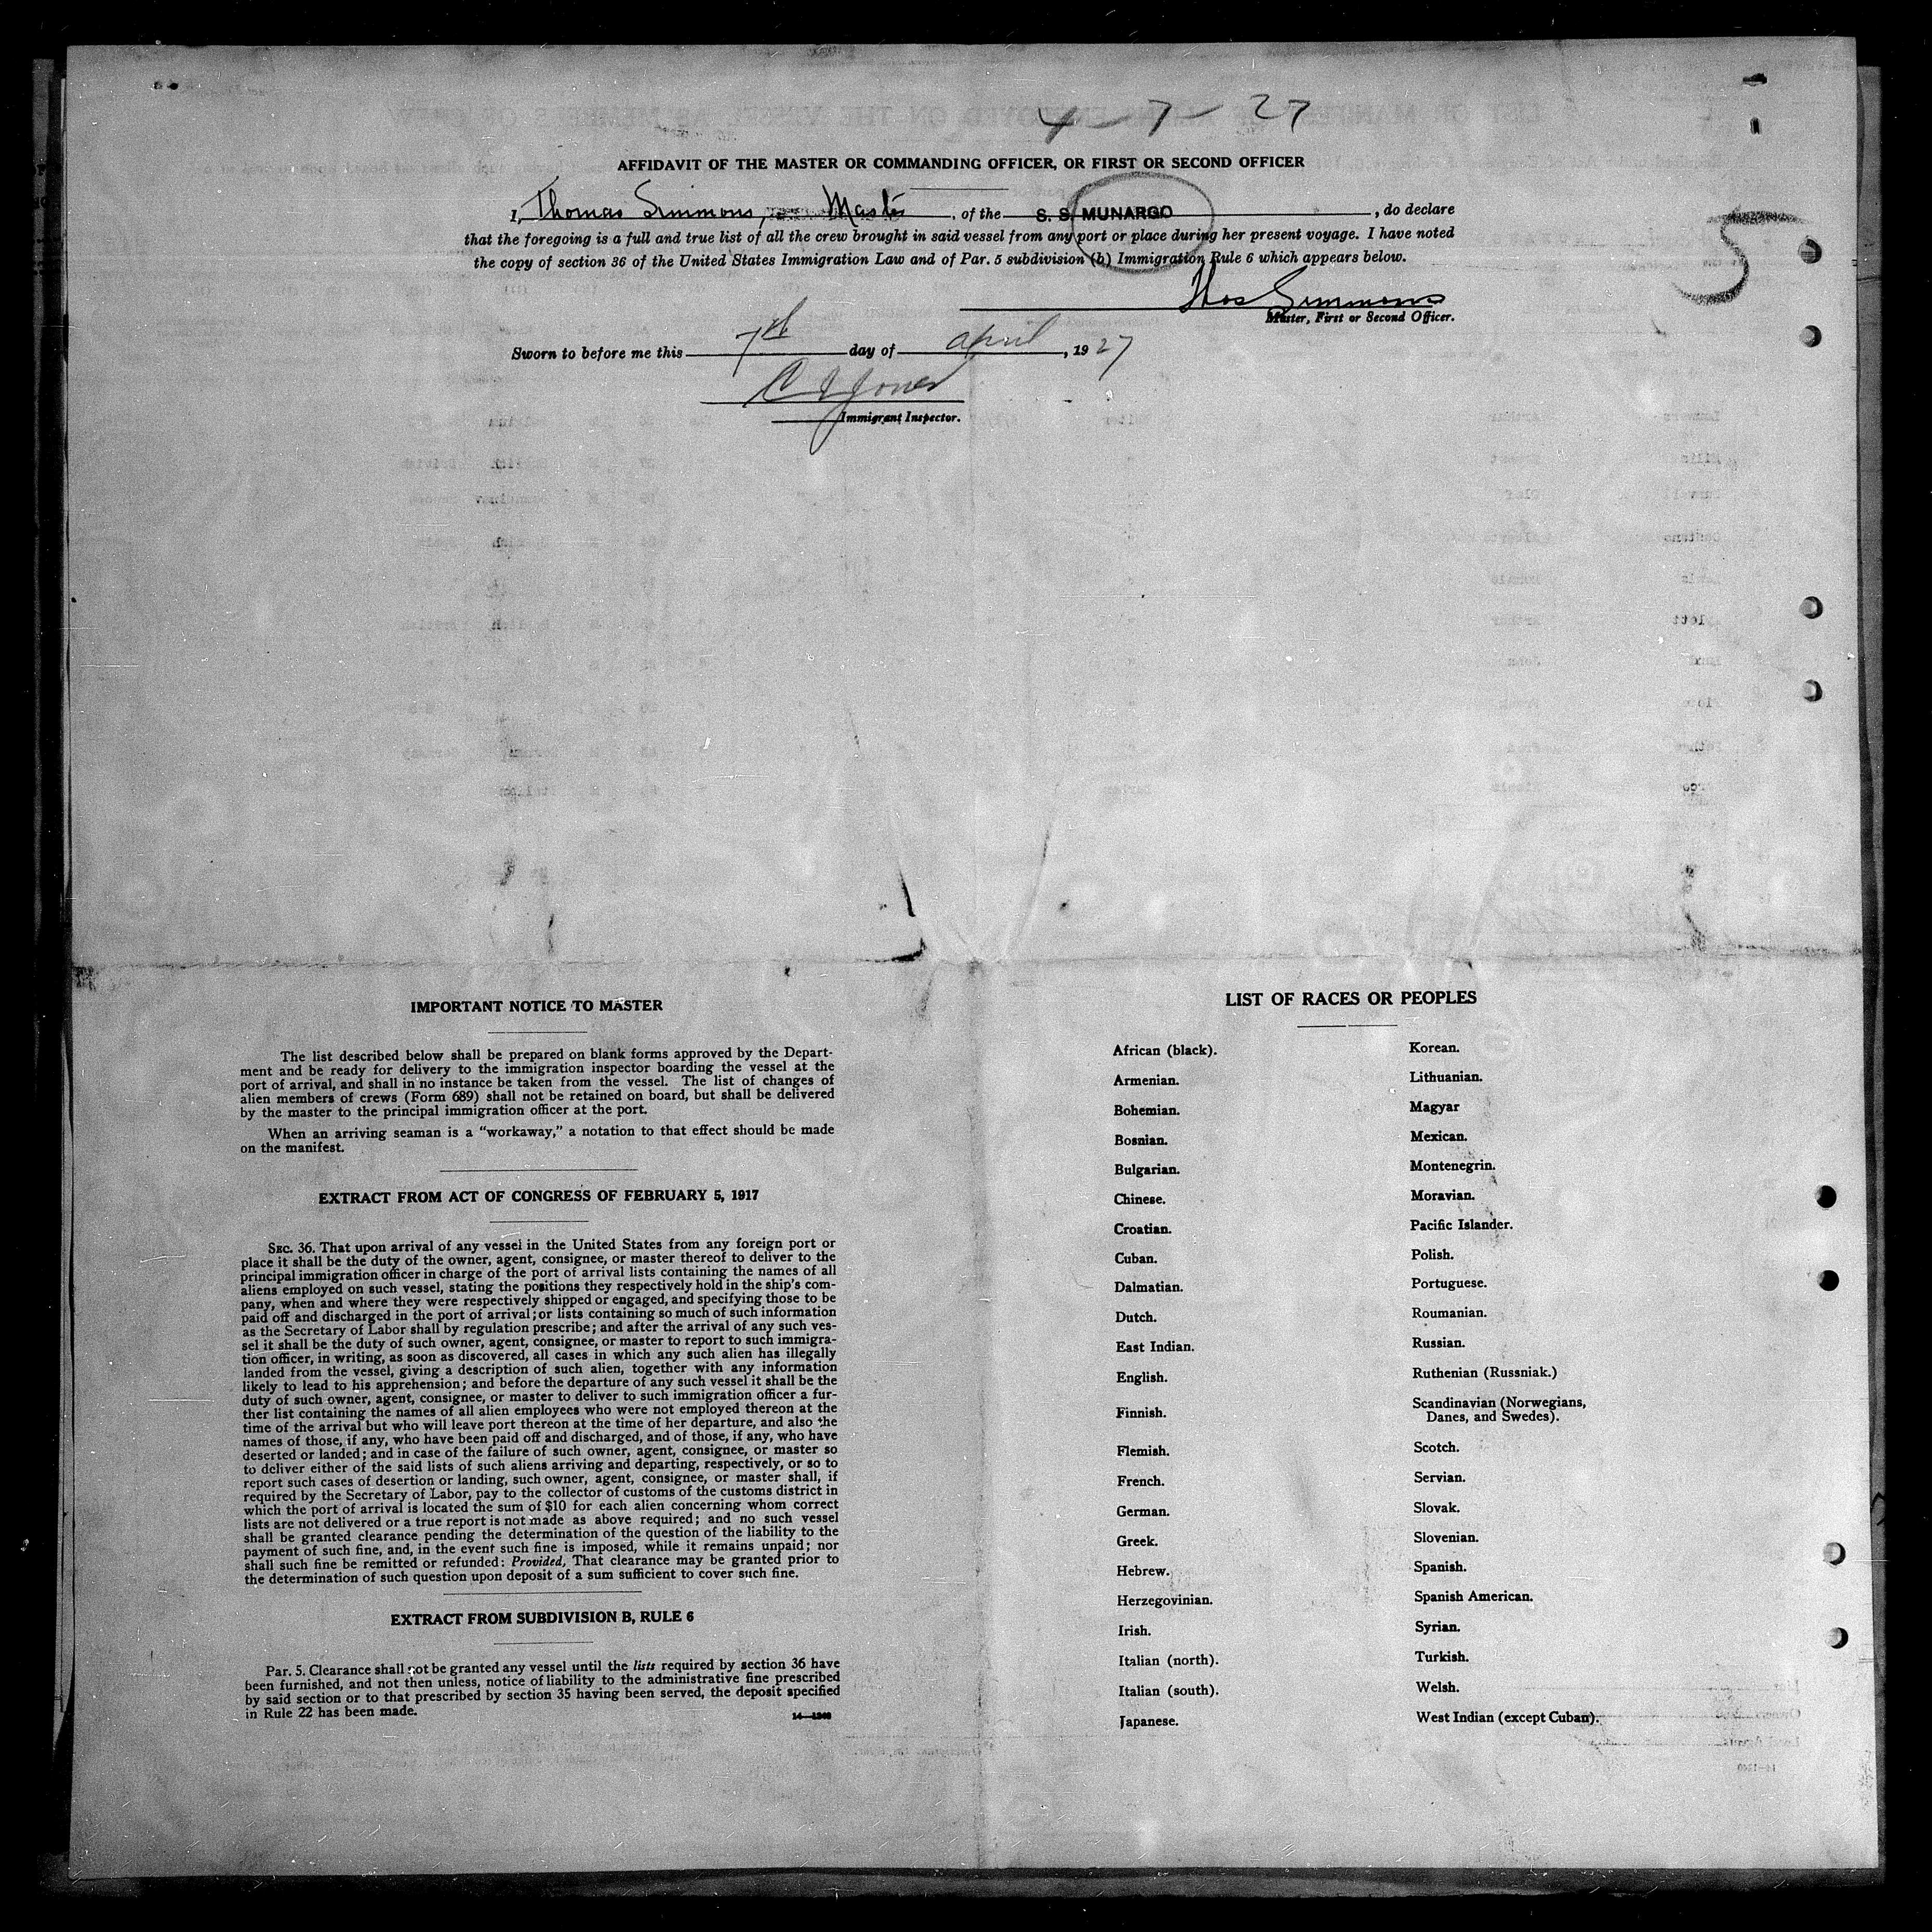 4 - 7 - 27
AFFIDAVIT OF THE MASTER OR COMMANDING OFFICER, OR FIRST OR SECOND OFFICER
I, Thomas Simmons, Master, of the S. S. MUNARGO, do declare
that the foregoing is a full and true list of all the crew brought in said vessel from any port or place during her present voyage. I have noted
the copy of section 36 of the United States Immigration Law and of Par. 5 subdivision (b) Immigration Rule 6 which appears below.
5
Thos Simmons
Master, First or Second Officer.
Sworn to before me this 7th day of april, 1927
Jones
Immigrant Inspector.
IMPORTANT NOTICE TO MASTER
The list described below shall be prepared on blank forms approved by the Depart-
ment and be ready for delivery to the immigration inspector boarding the vessel at the
port of arrival, and shall in no instance be taken from the vessel. The list of changes of
alien members of crews (Form 689) shall not be retained on board, but shall be delivered
by the master to the principal immigration officer at the port.
When an arriving seaman is a "workaway," a notation to that effect should be made
on the manifest.
EXTRACT FROM ACT OF CONGRESS OF FEBRUARY 5, 1917
SEC. 36. That upon arrival of any vessel in the United States from any foreign port or
place it shall be the duty of the owner, agent, consignee, or master thereof to deliver to the
principal immigration officer in charge of the port of arrival lists containing the names of all
aliens employed on such vessel, stating the positions they respectively hold in the ship's com-
pany, when and where they were respectively shipped or engaged, and specifying those to be
paid off and discharged in the port of arrival; or lists containing so much of such information
as the Secretary of Labor shall by regulation prescribe; and after the arrival of any such ves-
sel it shall be the duty of such owner, agent, consignee, or master to report to such immigra-
tion officer, in writing, as soon as discovered, all cases in which any such alien has illegally
landed from the vessel, giving a description of such alien, together with any information
likely to lead to his apprehension; and before the departure of any such vessel it shall be the
duty of such owner, agent, consignee, or master to deliver to such immigration officer a fur-
ther list containing the names of all alien employees who were not employed thereon at the
time of the arrival but who will leave port thereon at the time of her departure, and also the
names of those, if any, who have been paid off and discharged, and of those, if any, who have
deserted or landed; and in case of the failure of such owner, agent, consignee, or master so
to deliver either of the said lists of such aliens arriving and departing, respectively, or so to
report such cases of desertion or landing, such owner, agent, consignee, or master shall, if
required by the Secretary of Labor, pay to the collector of customs of the customs district in
which the port of arrival is located the sum of $10 for each alien concerning whom correct
lists are not delivered or a true report is not made as above required; and no such vessel
shall be granted clearance pending the determination of the question of the liability to the
payment of such fine, and, in the event such fine is imposed, while it remains unpaid; nor
shall such fine be remitted or refunded: Provided, That clearance may be granted prior to
the determination of such question upon deposit of a sum sufficient to cover such fine.
EXTRACT FROM SUBDIVISION B, RULE 6
Par. 5. Clearance shall not be granted any vessel until the lists required by section 36 have
been furnished, and not then unless, notice of liability to the administrative fine prescribed
by said section or to that prescribed by section 35 having been served, the deposit specified
in Rule 22 has been made.
14—1240
LIST OF RACES OR PEOPLES
African (black).
Armenian.
Bohemian.
Bosnian.
Bulgarian.
Chinese.
Croatian.
Cuban.
Dalmatian.
Dutch.
East Indian.
English.
Finnish.
Flemish.
French.
German.
Greek.
Hebrew.
Herzegovinian.
Irish.
Italian (north).
Italian (south).
Japanese.
Korean.
Lithuanian.
Magyar
Mexican.
Montenegrin.
Moravian.
Pacific Islander.
Polish.
Portuguese.
Roumanian.
Russian.
Ruthenian (Russniak.)
Scandinavian (Norwegians,
Danes, and Swedes).
Scotch.
Servian.
Slovak.
Slovenian.
Spanish.
Spanish American.
Syrian.
Turkish.
Welsh.
West Indian (except Cuban).